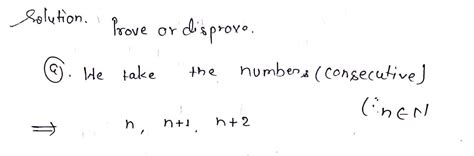 Solution. Prove or disprove.
(a). We take the numbers (consecutive)
(∵ n ∈ N
⇒ n, n+1, n+2